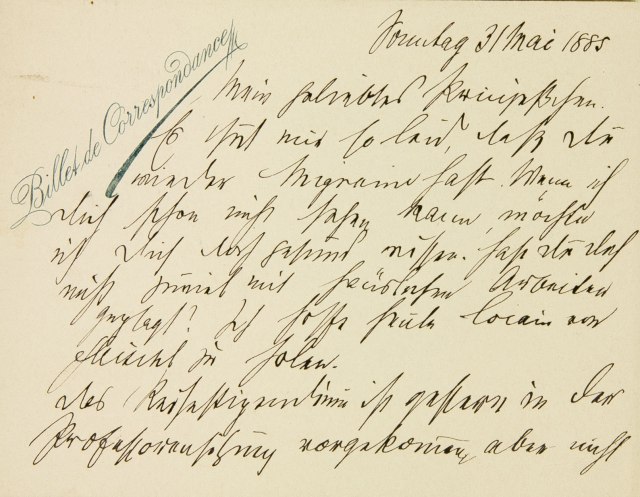 Billet de Correspondance
Sonntag 31 Mai 1885
Mein geliebtes Prinzeßchen.
Es thut mir so leid, daß du
wieder Migraine hast. Wenn ich
dich schon nicht sehen kann, möchte
ich dich doch gesund wissen. hast du dich
nicht zuviel mit häuslichen Arbeiten
geplagt? Ich hoffe heute Cocain von
Fleischl zu holen.
Das Reisestipendium ist gestern in der
Professorensitzung vorgekommen, aber nicht